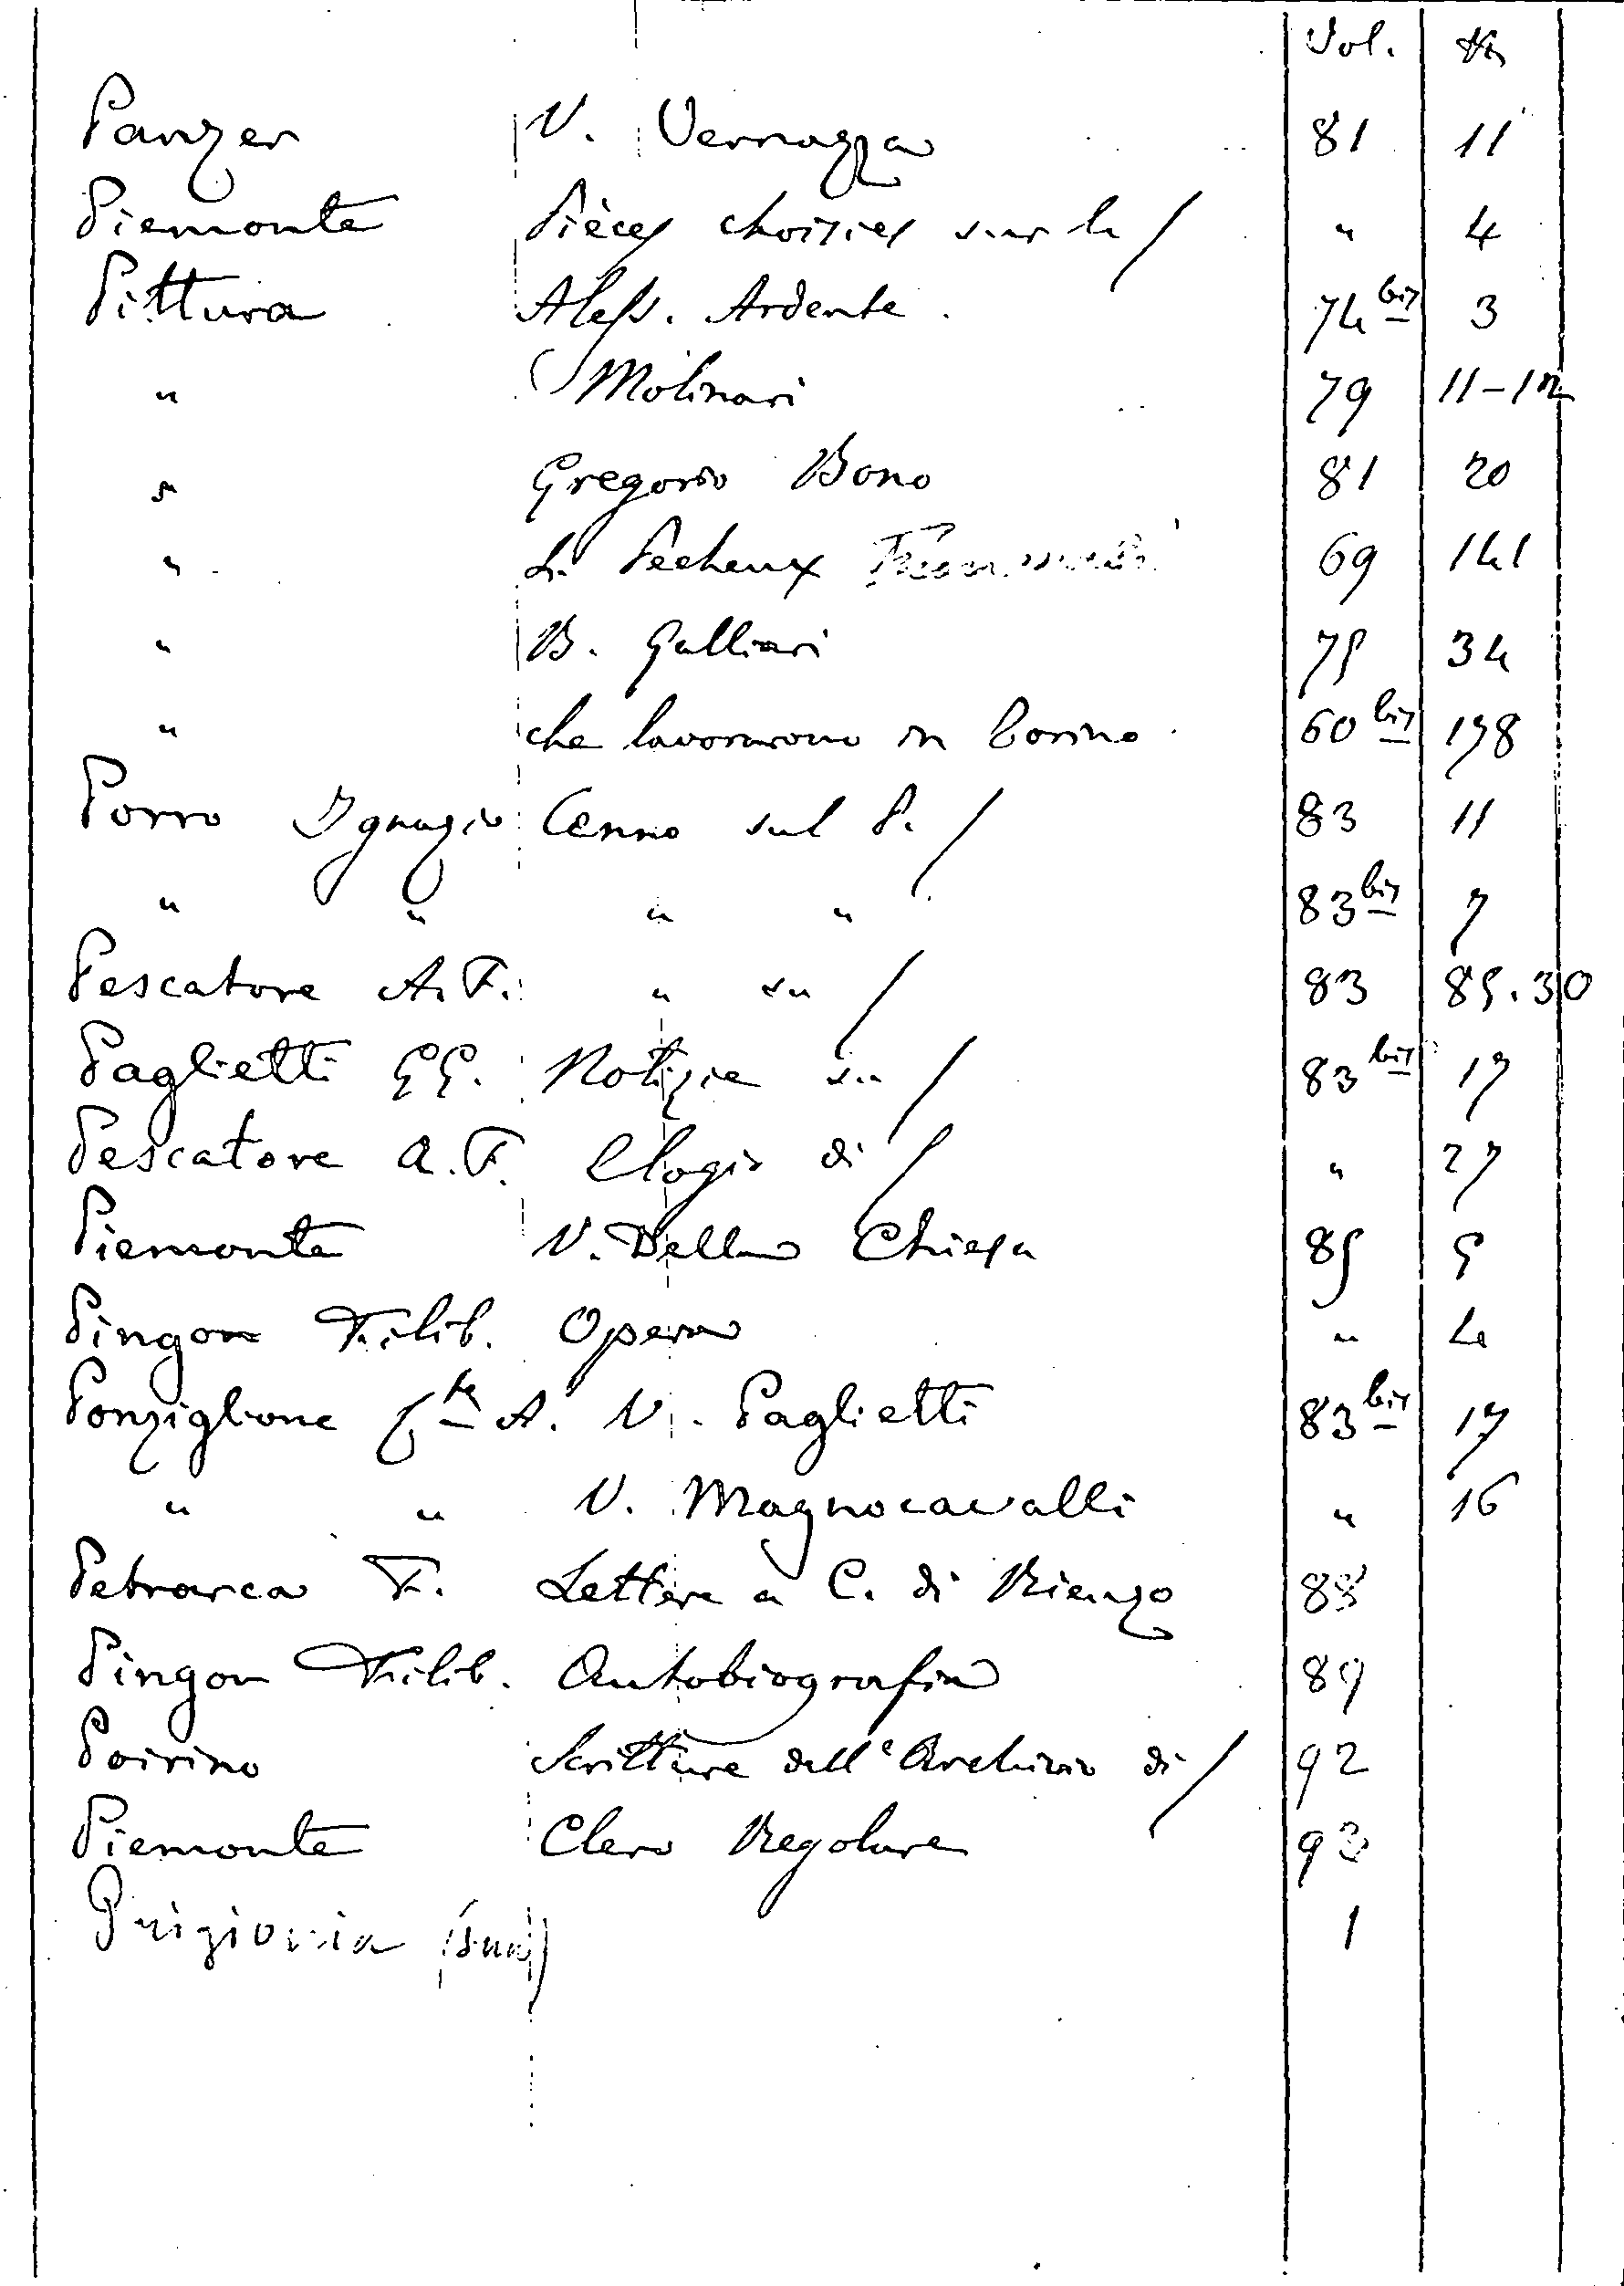 Vol. N.
Panzer V. Vernazza 81 11
Piemonte Pièces choisies sur le / " 4
Pittura Aless. Ardente. 74 bis 3
" Molinari 79 11-12
" Gregorio Bono 81 20
" L. Pecheux 69 141
" B. Galliari 75 34
" che lavorarono in Torino 60 bis 178
Porro Ignazio Cenno sul P. / 83 11
" " " " 83 bis 7
Pescatore A. F. " su / 83 85.30
Paglietti G G. Notizie su / 83 bis 17
Pescatore A. F. Elogio di / " 27
Piemonte V. Della Chiesa 85 5
Pingon Filib. Opera " 4
Ponziglione A. V. Paglietti 83 bis 17
" " V. Magnocavalli " 16
Petrarca F. Lettere a C. di Rienzo 88
Pingon Filib. Autobiografia 89
Poirino Scritture dell'Archivio di / 92
Piemonte Clero Regolare 93
1